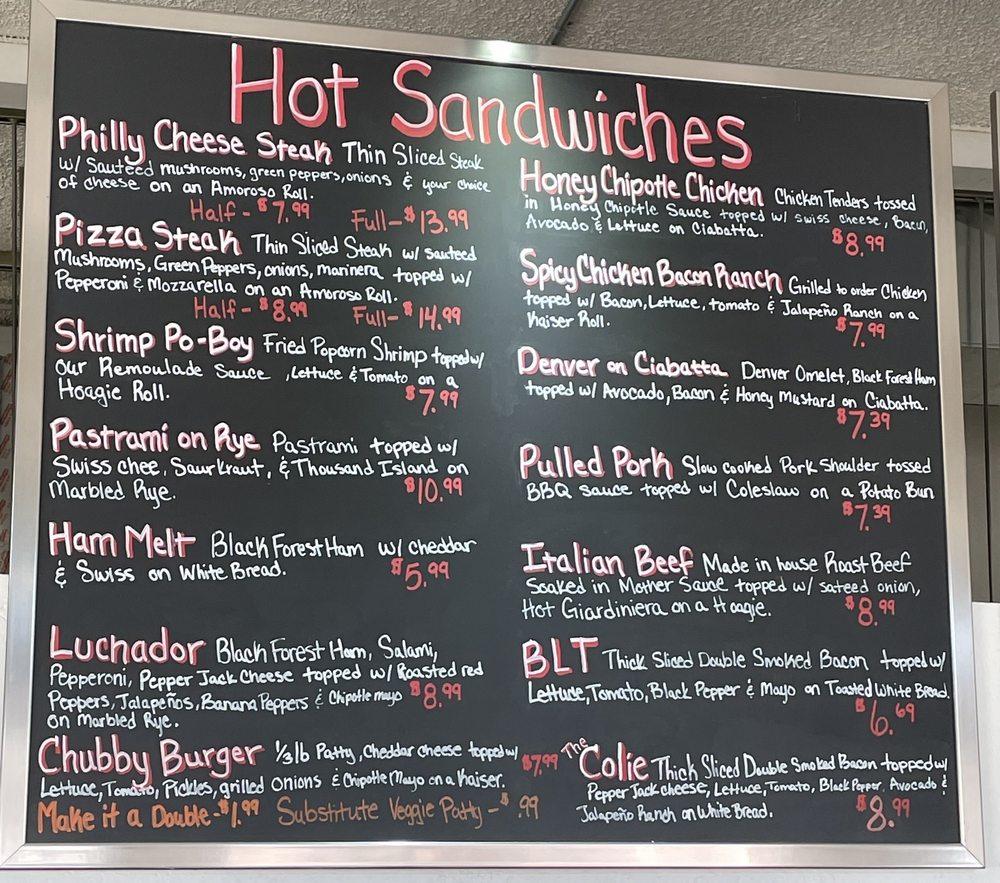 Hot Sandwiches
Philly Cheese Steak Thin Sliced Steak
w/ Sauteed mushrooms, green peppers, onions & your choice
of cheese on an Amoroso Roll.
Half - $7.99 Full - $13.99
Pizza Steak Thin Sliced Steak w/ sauteed
Mushrooms, Green Peppers, onions, marinera topped w/
Pepperoni & Mozzarella on an Amoroso Roll.
Half - $8.99 Full - $14.99
Shrimp Po-Boy Fried Popcorn Shrimp topped w/
our Remoulade Sauce, Lettuce & Tomato on a
Hoagie Roll. $7.99
Pastrami on Rye Pastrami topped w/
Swiss chee, Saurkraut, & Thousand Island on
Marbled Rye. $10.99
Ham Melt Black Forest Ham w/ cheddar
& Swiss on White Bread. $5.99
Luchador Black Forest Ham, Salami,
Pepperoni, Pepper Jack Cheese topped w/ Roasted red
Peppers, Jalapeños, Banana Peppers & Chipotle mayo $8.99
on Marbled Rye.
Chubby Burger 1/3 lb Patty, Cheddar cheese topped w/ $7.99
Lettuce, Tomato, Pickles, grilled onions & Chipotle Mayo on a Kaiser.
Make it a Double - $1.99 Substitute Veggie Patty - $.99
Honey Chipotle Chicken Chicken Tenders tossed
in Honey Chipotle Sauce topped w/ swiss cheese, Bacon,
Avocado & Lettuce on Ciabatta. $8.99
Spicy Chicken Bacon Ranch Grilled to order Chicken
topped w/ Bacon, Lettuce, tomato & Jalapeño Ranch on a
Kaiser Roll. $7.99
Denver on Ciabatta Denver Omelet, Black Forest Ham
topped w/ Avocado, Bacon & Honey Mustard on Ciabatta.
$7.39
Pulled Pork Slow cooked Pork Shoulder tossed
BBQ sauce topped w/ Coleslaw on a Potato Bun
$7.39
Italian Beef Made in house Roast Beef
Soaked in Mother Sauce topped w/ sateed onion,
Hot Giardiniera on a Hoagie. $8.99
BLT Thick Sliced Double Smoked Bacon topped w/
Lettuce, Tomato, Black Pepper & Mayo on Toasted White Bread.
$6.69
The Colie Thick Sliced Double Smoked Bacon topped w/
Pepper Jack cheese, Lettuce, Tomato, Black Pepper, Avocado &
Jalapeño Ranch on White Bread. $8.99